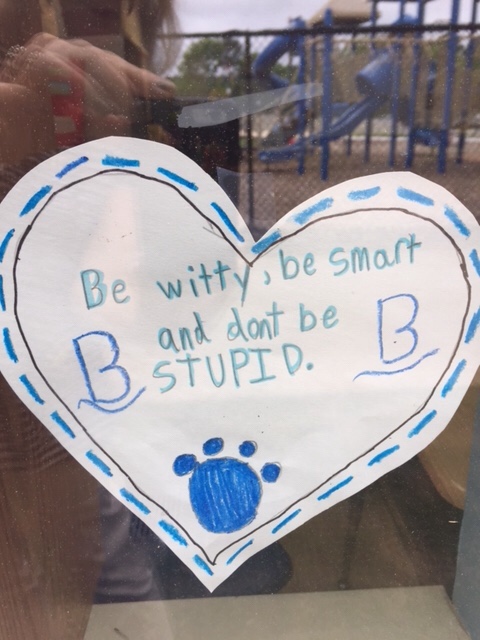 Be witty, be smart
and dont be
B STUPID. B